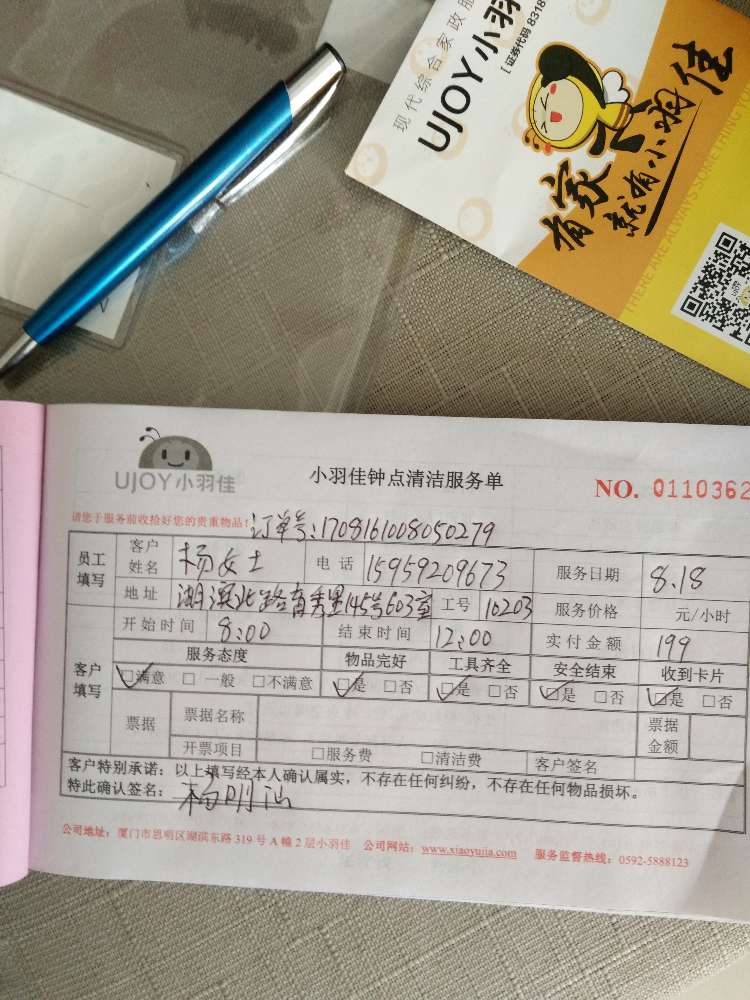 现代综合家政服
UJOY小羽
[证券代码 8318
有家
就有小羽佳
THERE ARE ALWAYS SOMETHING YOU
UJOY小羽佳
小羽佳钟点清洁服务单
NO. 0110362
请您于服务前收拾好您的贵重物品!
订单号:1708161008050279
员工填写 客户姓名 杨女士 电话 15959209673 服务日期 8.18
地址 湖滨北路育秀里145号603室 工号 10203 服务价格 元/小时
开始时间 8:00 结束时间 12:00 实付金额 199
客户填写 服务态度 物品完好 工具齐全 安全结束 收到卡片
☑满意 □一般 □不满意 ☑是 □否 ☑是 □否 ☑是 □否 ☑是 □否
票据 票据名称 票据金额
开票项目 □服务费 □清洁费 客户签名
客户特别承诺:以上填写经本人确认属实,不存在任何纠纷,不存在任何物品损坏。
特此确认签名: 杨明
公司地址:厦门市思明区湖滨东路319号A幢2层小羽佳 公司网站:www.xiaoyujia.com 服务监督热线:0592-5888123